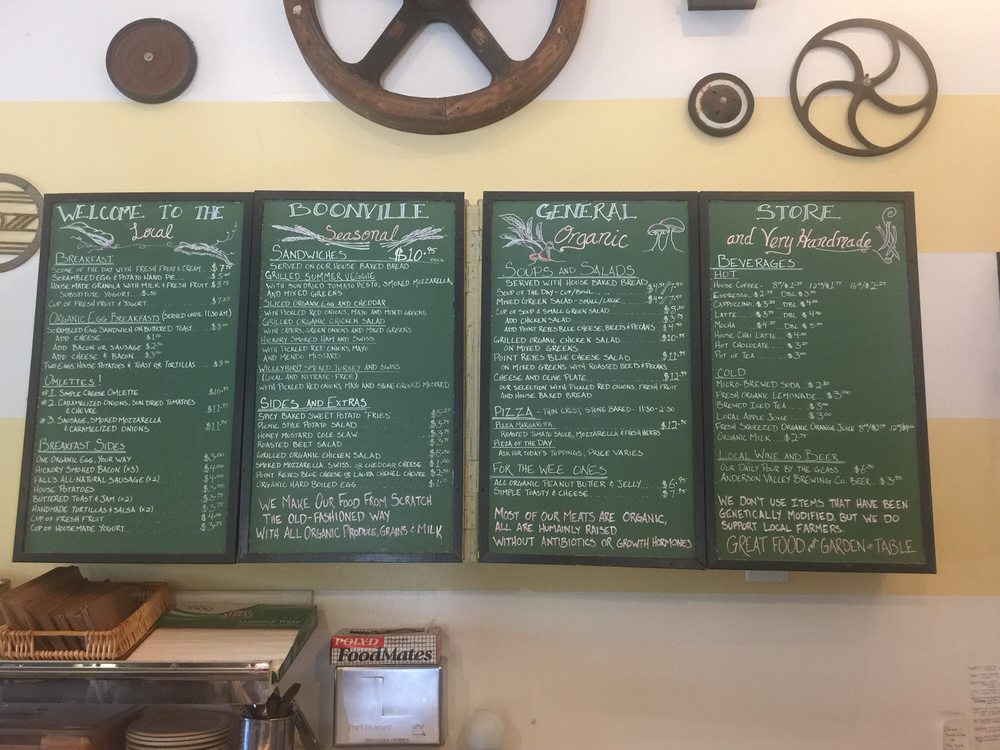 WELCOME TO THE
Local
BREAKFAST
SCONE OF THE DAY WITH FRESH FRUIT & CREAM
SCRAMBLED EGG & POTATO HAND PIE
HOUSE MADE GRANOLA WITH MILK & FRESH FRUIT $8.75
SUBSTITUTE YOGURT $.50
CUP OF FRESH FRUIT & YOGURT $7.25
ORGANIC EGG BREAKFASTS (SERVED UNTIL 11:30 AM)
SCRAMBLED EGG SANDWICH ON BUTTERED TOAST $8.00
ADD CHEESE $1.00
ADD BACON OR SAUSAGE
ADD CHEESE & BACON $3.00
TWO EGGS, HOUSE POTATOES & TOAST OR TORTILLAS
OMLETTES!
#1. SIMPLE CHEESE OMLETTE $10.75
#2. CARAMELIZED ONIONS, SUN DRIED TOMATOES
& CHEVRE $11.75
#3. SAUSAGE, SMOKED MOZZARELLA
& CARAMELIZED ONIONS $11.75
BREAKFAST SIDES
ONE ORGANIC EGG, YOUR WAY $3.00
HICKORY SMOKED BACON (x3) $4.00
FALL'S ALL-NATURAL SAUSAGE (x2) $4.00
HOUSE POTATOES
BUTTERED TOAST & JAM (x2)
HANDMADE TORTILLAS & SALSA (x2)
CUP OF FRESH FRUIT
CUP OF HOUSEMADE YOGURT
BOONVILLE
Seasonal
SANDWICHES $10.95 EACH
SERVED ON OUR HOUSE BAKED BREAD
GRILLED SUMMER VEGGIE
WITH SUN DRIED TOMATO PESTO, SMOKED MOZZARELLA,
AND MIXED GREENS
SLICED ORGANIC EGG AND CHEDDAR
WITH PICKLED RED ONIONS, MAYO AND MIXED GREENS
GRILLED ORGANIC CHICKEN SALAD
WITH CAPERS, GREEN ONIONS AND MIXED GREENS
HICKORY SMOKED HAM AND SWISS
WITH PICKLED RED ONIONS, MAYO
AND MENDO MUSTARD
WILLEYBIRD SMOKED TURKEY AND SWISS
(LOCAL AND NITRATE-FREE)
WITH PICKLED RED ONIONS, MAYO AND STONE GROUND MUSTARD
SIDES AND EXTRAS
SPICY BAKED SWEET POTATO "FRIES" $5.25
PICNIC STYLE POTATO SALAD $3.75
HONEY MUSTARD COLE SLAW $3.75
ROASTED BEET SALAD $3.75
GRILLED ORGANIC CHICKEN SALAD $5.50
SMOKED MOZZARELLA, SWISS, OR CHEDDAR CHEESE $1.00
POINT REYES BLUE CHEESE OR LAURA CHENEL CHEVRE $2.00
ORGANIC HARD BOILED EGG
WE MAKE OUR FOOD FROM SCRATCH
THE OLD-FASHIONED WAY
WITH ALL ORGANIC PRODUCE, GRAINS & MILK
GENERAL
Organic
SOUPS AND SALADS
SERVED WITH HOUSE BAKED BREAD
SOUP OF THE DAY - CUP/BOWL
MIXED GREEN SALAD - SMALL/LARGE
CUP OF SOUP & SMALL GREEN SALAD
ADD CHICKEN SALAD
ADD POINT REYES BLUE CHEESE, BEETS & PECANS $4.50
GRILLED ORGANIC CHICKEN SALAD $10.75
ON MIXED GREENS
POINT REYES BLUE CHEESE SALAD $11.95
ON MIXED GREENS WITH ROASTED BEETS & PECANS
CHEESE AND OLIVE PLATE
OUR SELECTION WITH PICKLED RED ONIONS, FRESH FRUIT
AND HOUSE BAKED BREAD
PIZZA - THIN CRUST, STONE BAKED - 11:30-2:30
PIZZA MARGARITA $12.75
ROASTED TOMATO SAUCE, MOZZARELLA & FRESH HERBS
PIZZA OF THE DAY
ASK FOR TODAY'S TOPPINGS, PRICE VARIES
FOR THE WEE ONES
ALL ORGANIC PEANUT BUTTER & JELLY
SIMPLE TOASTY & CHEESE
MOST OF OUR MEATS ARE ORGANIC,
ALL ARE HUMAINLY RAISED
WITHOUT ANTIBIOTICS OR GROWTH HORMONES
STORE
and Very Handmade
BEVERAGES
HOT
HOUSE COFFEE - 8oz/$1.75 12oz/$2 16oz/$2.25
ESPRESSO $2.75 DBL $3.00
CAPPUCCINO $3.75 DBL
LATTE $3.75 DBL $4.50
MOCHA $4.25 DBL $5.00
HOUSE CHAI LATTE $4.00
HOT CHOCOLATE
POT OF TEA $3.00
COLD
MICRO-BREWED SODA $2.50
FRESH ORGANIC LEMONADE $3.00
BREWED ICED TEA $3.00
LOCAL APPLE JUICE $3.00
FRESH SQUEEZED ORGANIC ORANGE JUICE
ORGANIC MILK $2.75
LOCAL WINE AND BEER
OUR DAILY POUR BY THE GLASS
ANDERSON VALLEY BREWING CO. BEER
WE DON'T USE ITEMS THAT HAVE BEEN
GENETICALLY MODIFIED, BUT WE DO
SUPPORT LOCAL FARMERS.
GREAT FOOD from GARDEN to TABLE
SANDWICH WRAP
POLY-D
FoodMates
Fort Howard